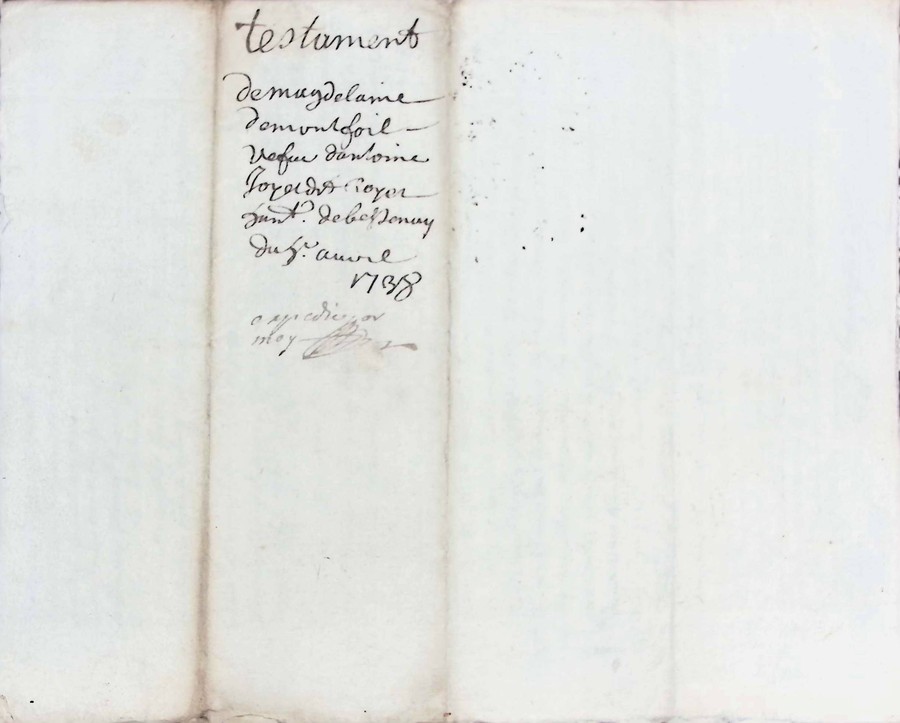 testament
de magdelaine
de montfoil
vefue dantoine
Joyet dit royet
hant. de bessenay
du 5e. auvril
1738
expedie por
moy